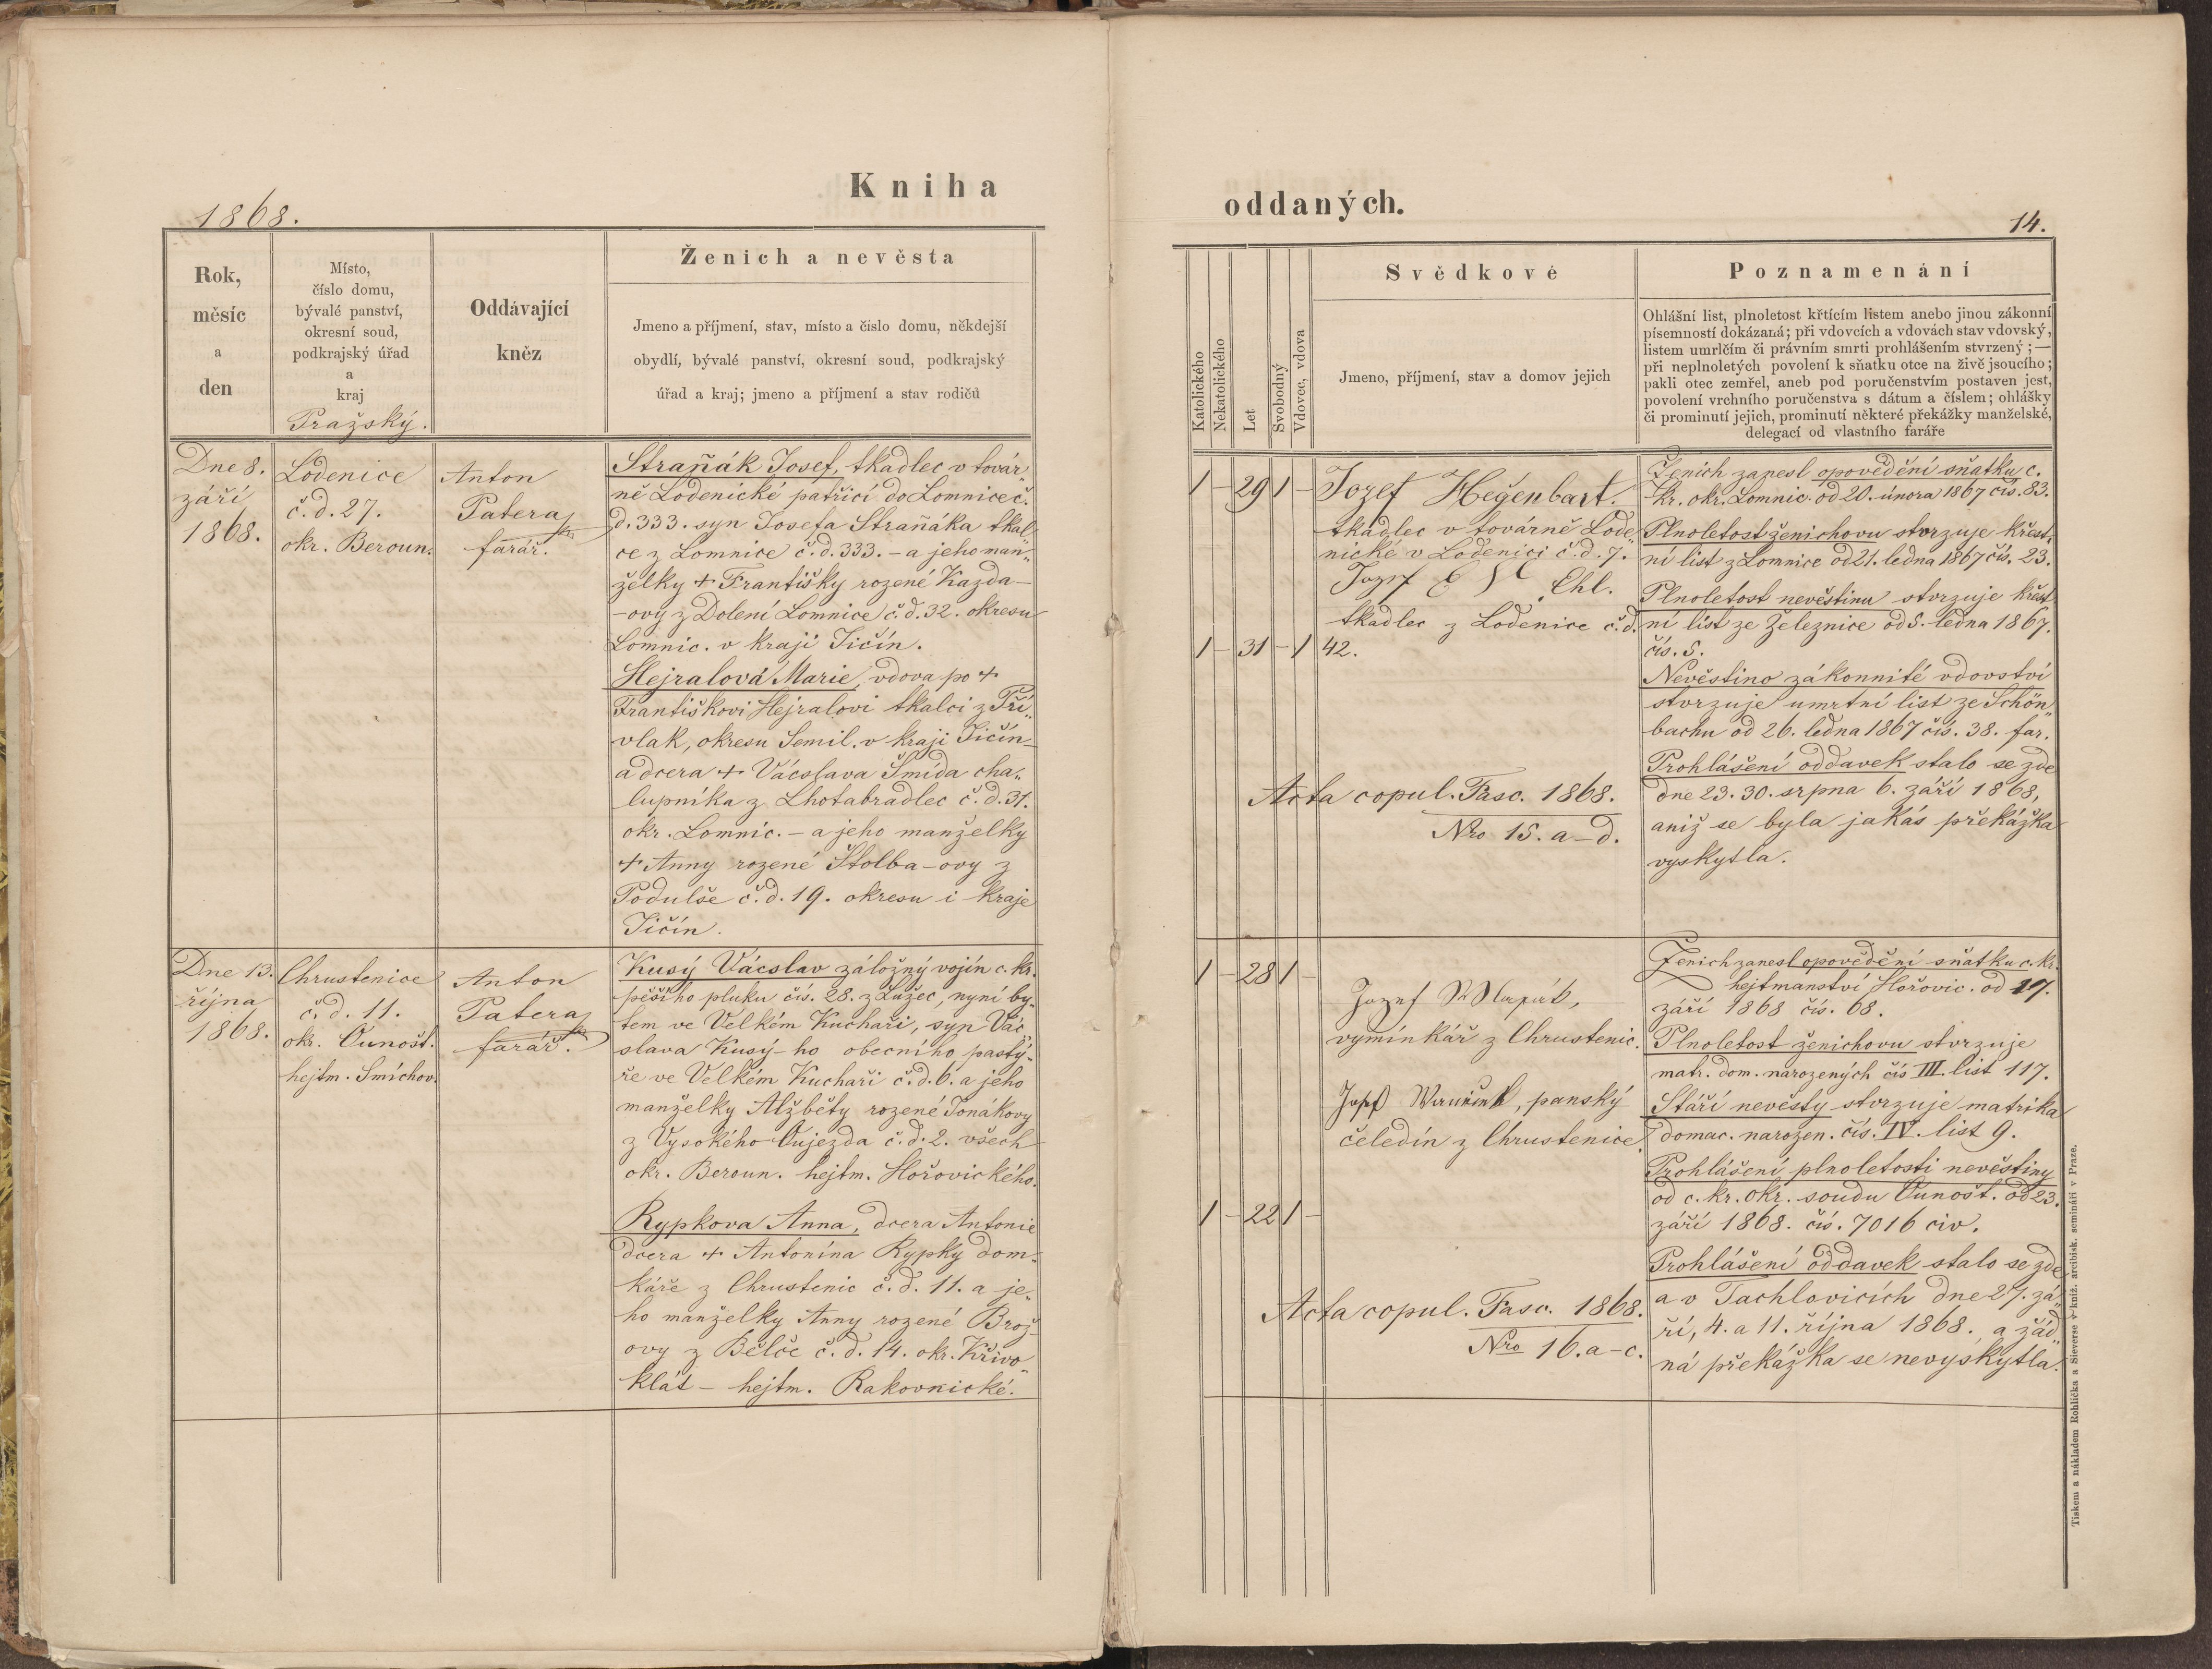 Kniha
1868.
Rok,
měsíc
a
den
Místo,
číslo domu,
bývalé panství,
okresní soud,
podkrajský úřad
a
kraj
Pražský.
Oddávající
kněz
Ženich a nevěsta
Jmeno a příjmení, stav, místo a číslo domu, někdejší
obydlí, bývalé panství, okresní soud, podkrajský
úřad a kraj; jmeno a příjmení a stav rodičů
Dne 8.
září
1868.
Lodenice
č. d. 27.
okr. Beroun.
Anton
Patera
farář.
Straňák Josef, tkadlec v továr„
ně Lodenické patřící do Lomnice č.
d. 333. syn Josefa Straňáka tkal„
ce z Lomnice č. d. 333. – a jeho man„
želky + Františky rozené Kazda–
–ovy z Dolení Lomnice č. d. 32. okresu
Lomnic. v kraji Jičín.
Hejralová Marie, vdova po +
Františkovi Hejralovi tkalci z Tří„
vlak, okresu Semil. v kraji Jičín–
a dcera + Vácslava Šmída cha„
lupníka z Lhotabradlec č. d. 31.
okr. Lomnic. – a jeho manželky
+ Anny rozené Štolba–ovy z
Podulše č. d. 19. okresu i kraje
Jičín.
Dne 13.
října
1868.
Chrustenice
č. d. 11.
okr. Ounošt.
hejtm. Smíchov.
Anton
Patera
farář.
Kusý Vácslav záložný vojín c. kr.
pěšího pluku čís. 28. z Lužec, nyní by„
tem ve Velkém Kuchaři, syn Vác„
slava Kusý–ho obecního pastý„
ře ve Velkém Kuchaři č. d. 6. a jeho
manželky Alžběty rozené Tonákovy
z Vysokého Oujezda č. d. 2. všech
okr. Beroun. hejtm. Hořovického.
Rypkova Anna, dcera Antonie
dcera + Antonína Rypky dom„
káře z Chrustenic č. d. 11. a je„
ho manželky Anny rozené Brož–
ovy z Bělče č. d. 14. okr. Křivo„
klát – hejtm. Rakovnické.
oddaných.
14.
Katolického
Nekatolického
Let
Svobodný
Vdovec, vdova
Svědkové
Jmeno, příjmení, stav a domov jejich
Poznamenání
Ohlášní list, plnoletost křtícím listem anebo jinou zákonní
písemností dokázaná; při vdovcích a vdovách stav vdovský,
listem umrlčím či právním smrti prohlášením stvrzený; —
při neplnoletých povolení k sňatku otce na živě jsoucího;
pakli otec zemřel, aneb pod poručenstvím postaven jest,
povolení vrchního poručenstva s dátum a číslem; ohlášky
či prominutí jejich, prominutí některé překážky manželské,
delegací od vlastního faráře
1 – 29 1 –
Jozef Hegenbart.
tkadlec v továrně Lode„
nické v Lodenici č. d. 7.
Chl.
tkadlec z Lodenice č. d.
1 – 31 – 1
42.
Acta copul. Fasc. 1868.
Nro 15. a–d.
Ženich zanesl opovědění sňatku c.
kr. okr. Lomnic. od 20. února 1867 čís. 83.
Plnoletost ženichovu stvrzuje křest„
ní list z Lomnice od 21. ledna 1867 čís. 23.
Plnoletost nevěstinu stvrzuje křest
ní list ze Železnice od 5. ledna 1867.
čís. 5.
Nevěstino zákonnité vdovství
stvrzuje umrtní list ze Schön„
bachu od 26. ledna 1867 čís. 38. far.
Prohlášení oddavek stalo se zde
dne 23. 30. srpna 6. září 1868,
aniž se byla jakás překážka
vyskytla.
1 – 28 1 –
vymínkář z Chrustenic.
panský
čeledín z Chrustenice.
1 – 22 1 –
Acta copul. Fasc. 1868.
Nro 16. a–c.
Ženich zanesl opovědění sňatku c. kr.
hejtmanství Hořovic. od 17.
září 1868 čís. 68.
Plnoletost ženichovu stvrzuje
matr. dom. narozených čís III. list 117.
Stáří nevěsty stvrzuje matrika
domac. narozen. čís. IV. list 9.
Prohlášení plnoletosti nevěstiny
od c. kr. okr. soudu Ounošt. od 23.
září 1868. čís. 7016 civ.
Prohlášení oddavek stalo se zde
a v Tachlovicích dne 27. zá„
ří, 4. a 11. října 1868., a žád„
ná překážka se nevyskytla.
Tiskem a nákladem Rohlíčka a Sieverse v kniž. arcibisk. semináři v Praze.